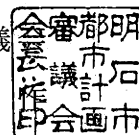 明石市
都市計画
審議会
会長印
議